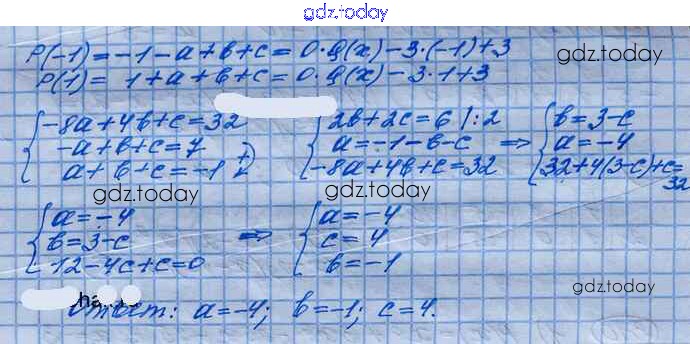 gdz.today
P(-1) = -1 - a + b + c = 0·q(x) - 3·(-1) + 3
P(1) = 1 + a + b + c = 0·q(x) - 3·1 + 3
gdz.today
{ -8a + 4b + c = 32
-a + b + c = 7
a + b + c = -1 +)
{ 2b + 2c = 6 | : 2
a = -1 - b - c
-8a + 4b + c = 32
=> { b = 3 - c
a = -4
32 + 4(3 - c) + c = 32
gdz.today
gdz.today
{ a = -4
b = 3 - c
12 - 4c + c = 0
=> { a = -4
c = 4
b = -1
gdz.today
Ответ: a = -4; b = -1; c = 4.